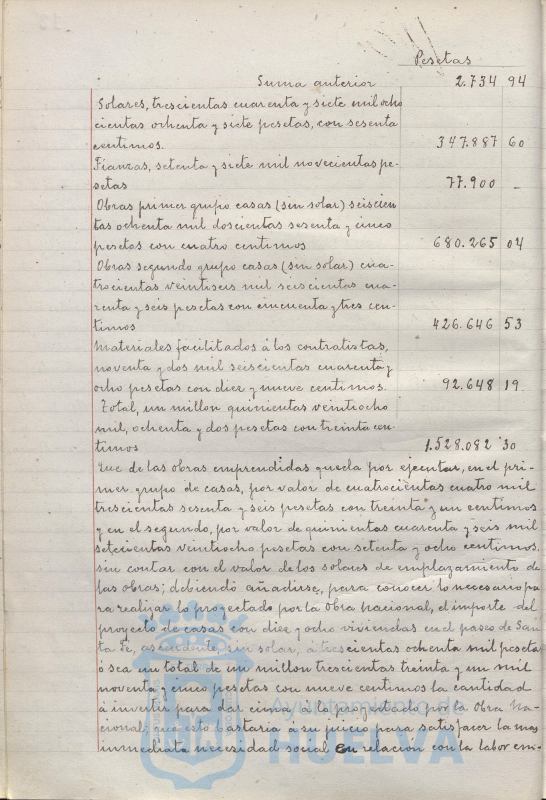 Pesetas
Suma anterior 2.734 94
Solares, trescientas cuarenta y siete mil ocho
cientas ochenta y siete pesetas, con sesenta
centimos. 347.887 60
Fianzas, setenta y siete mil novecientas pe-
setas 77.900 -
Obras primer grupo casas (sin solar) seiscien
tas ochenta mil doscientas sesenta y cinco
pesetas con cuatro centimos 680.265 04
Obras segundo grupo casas (sin solar) cua-
trocientas veintiseis mil seiscientas cua-
renta y seis pesetas con cincuenta y tres cen-
timos 426.646 53
Materiales facilitados á los contratistas,
noventa y dos mil seiscientas cuarenta y
ocho pesetas con diez y nueve centimos. 92.648 19
Total, un millon quinientas veintiocho
mil, ochenta y dos pesetas con treinta cen-
timos 1.528.082 30
Que de las obras emprendidas queda por ejecutar, en el pri-
mer grupo de casas, por valor de cuatrocientas cuatro mil
trescientas sesenta y seis pesetas con treinta y un centimos
y en el segundo, por valor de quinientas cuarenta y seis mil
setecientas veintiocho pesetas con setenta y ocho centimos,
sin contar con el valor de los solares de emplazamiento de
las obras; debiendo añadirse, para conocer lo necesario pa
ra realizar lo proyectado por la Obra nacional, el importe del
proyecto de casas con diez y ocho viviendas en el paseo de San
ta Fe, ascendente, sin solar, á trescientas ochenta mil pesetas
ó sea un total de un millon trescientas treinta y un mil
noventa y cinco pesetas con nueve centimos la cantidad
á invertir para dar cima á lo proyectado por la Obra Na-
cional; que esto bastaria á su juicio para satisfacer la mas
inmediata necesidad social en relación con la labor em-
Ayuntamiento de
HUELVA